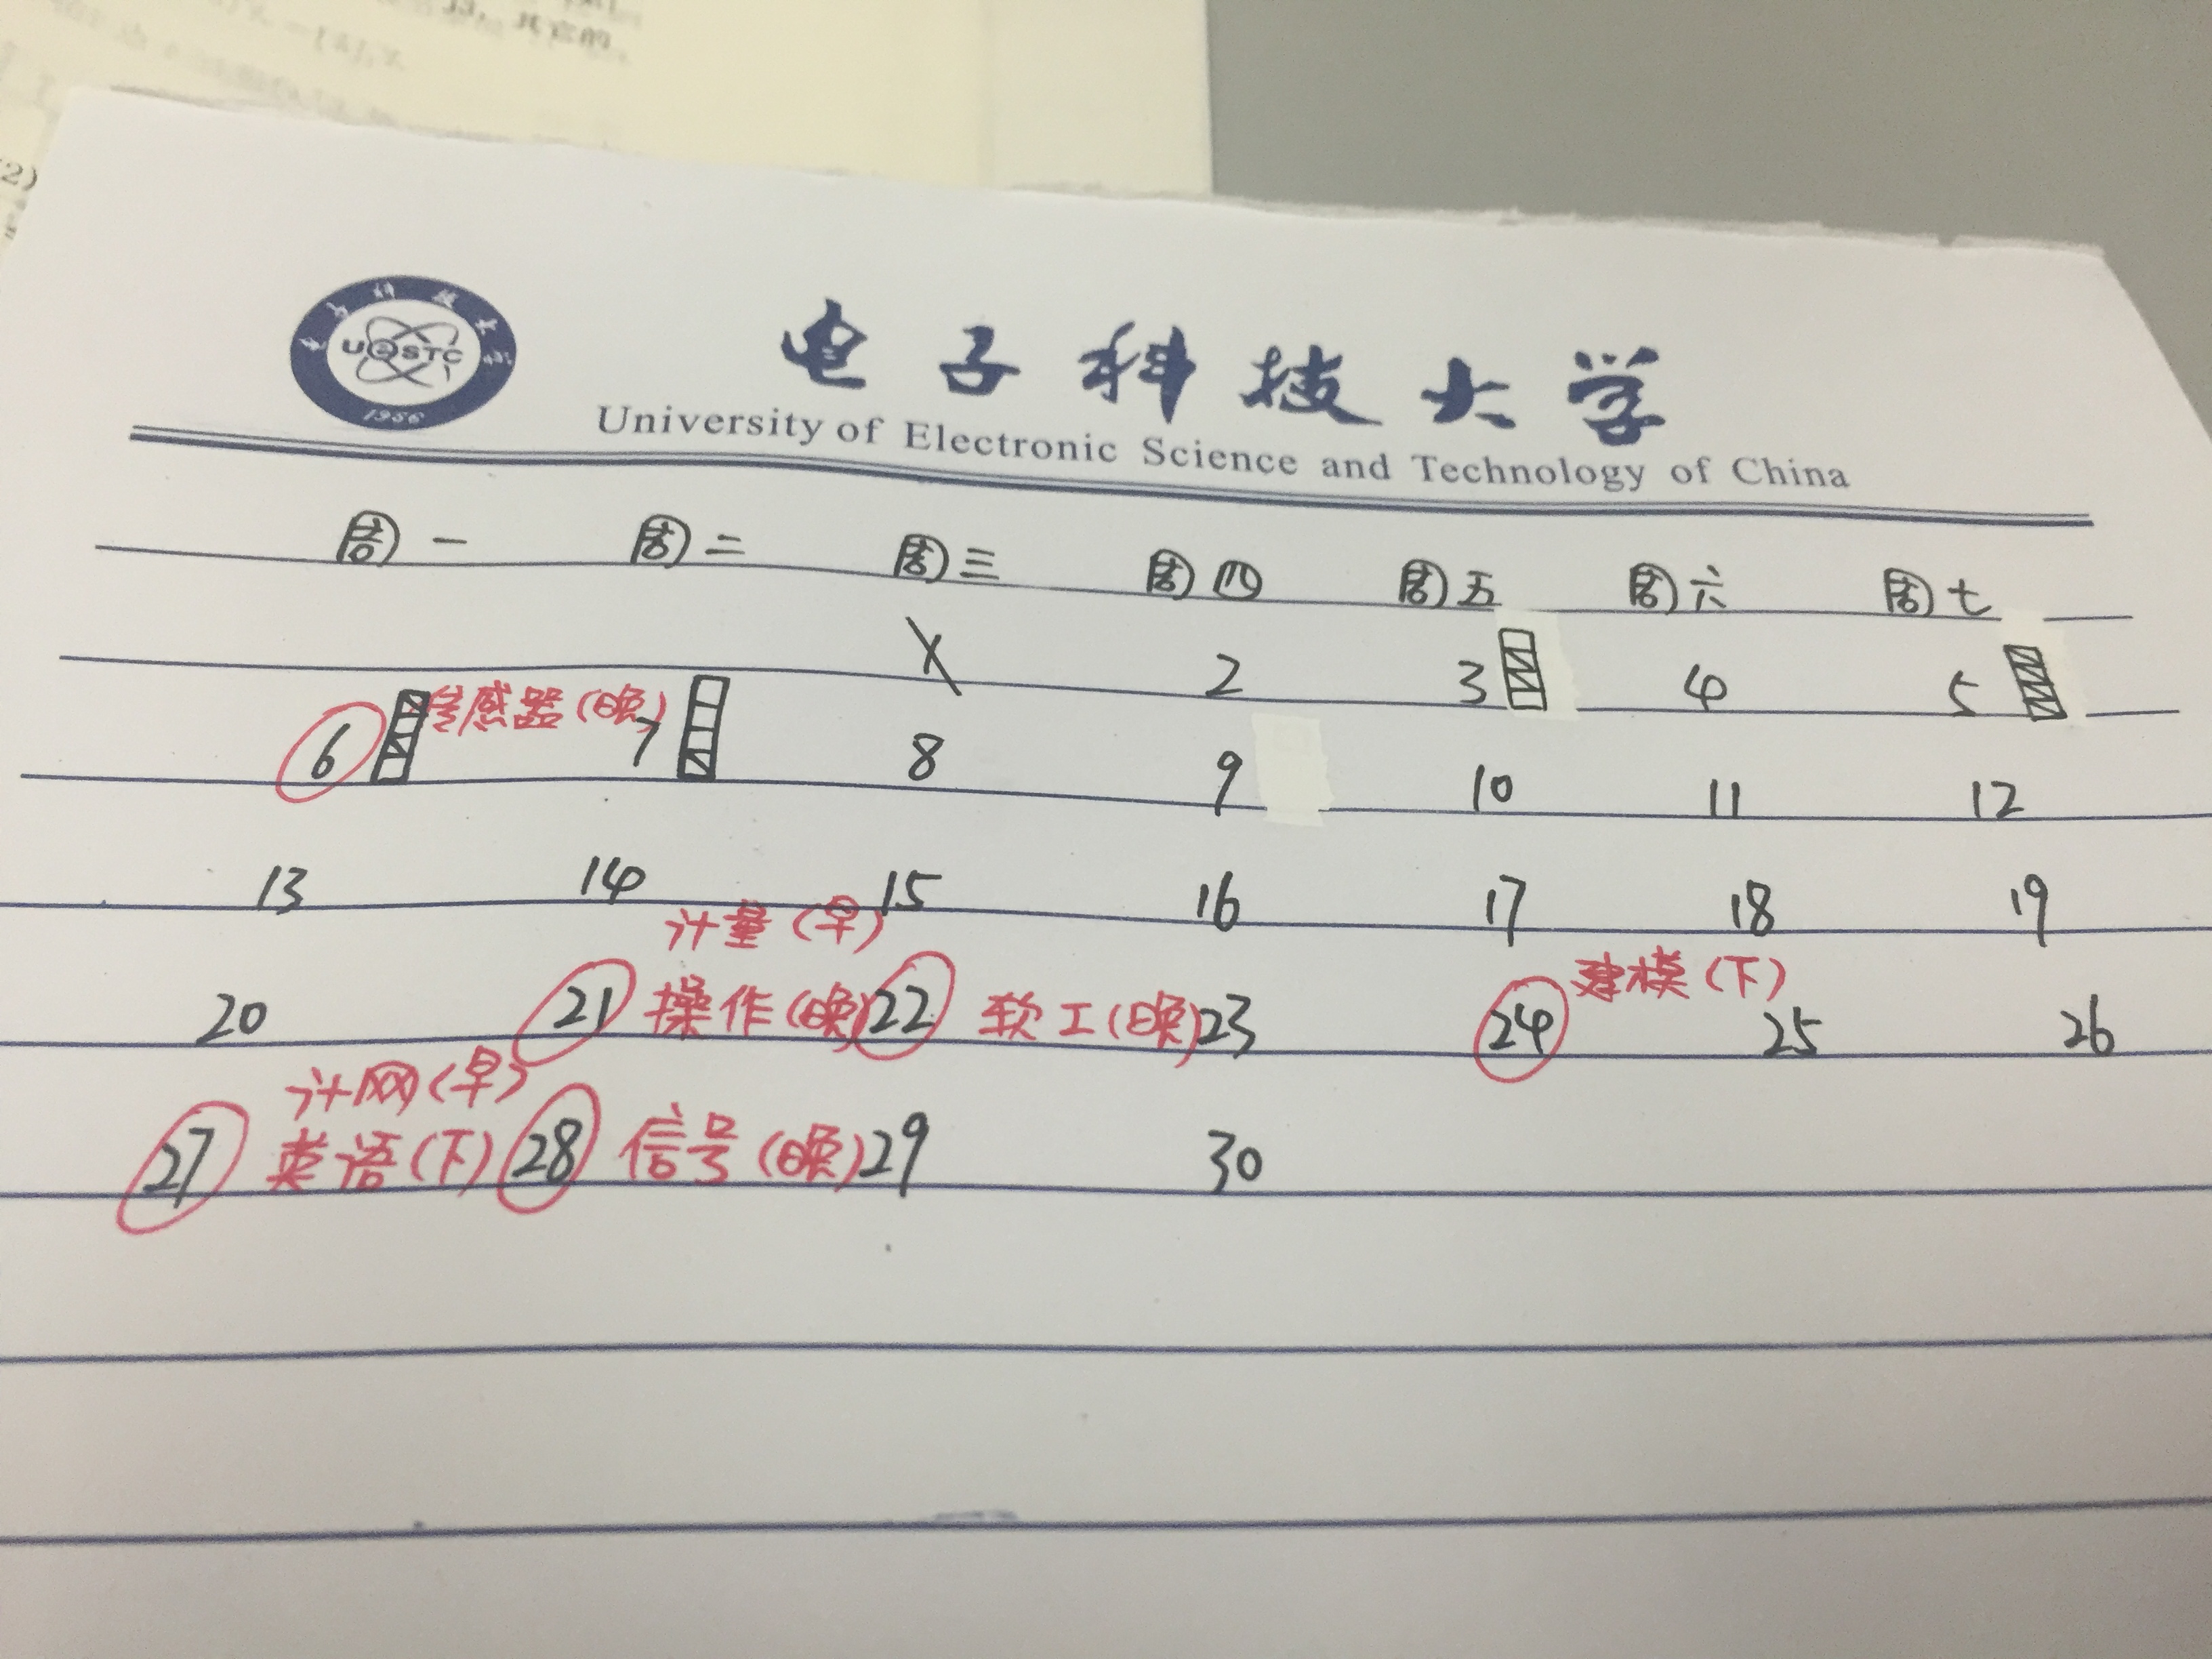 其它的
(2)
UESTC
1956
电子科技大学
University of Electronic Science and Technology of China
周一 周二 周三 周四 周五 周六 周七
2 3 4 5
6 传感器(晚) 7 8 9 10 11 12
13 14 15 16 17 18 19
计量(早)
20 21 操作(晚) 22 软工(晚) 23 24 建模(下) 25 26
计网(早)
27 英语(下) 28 信号(晚) 29 30